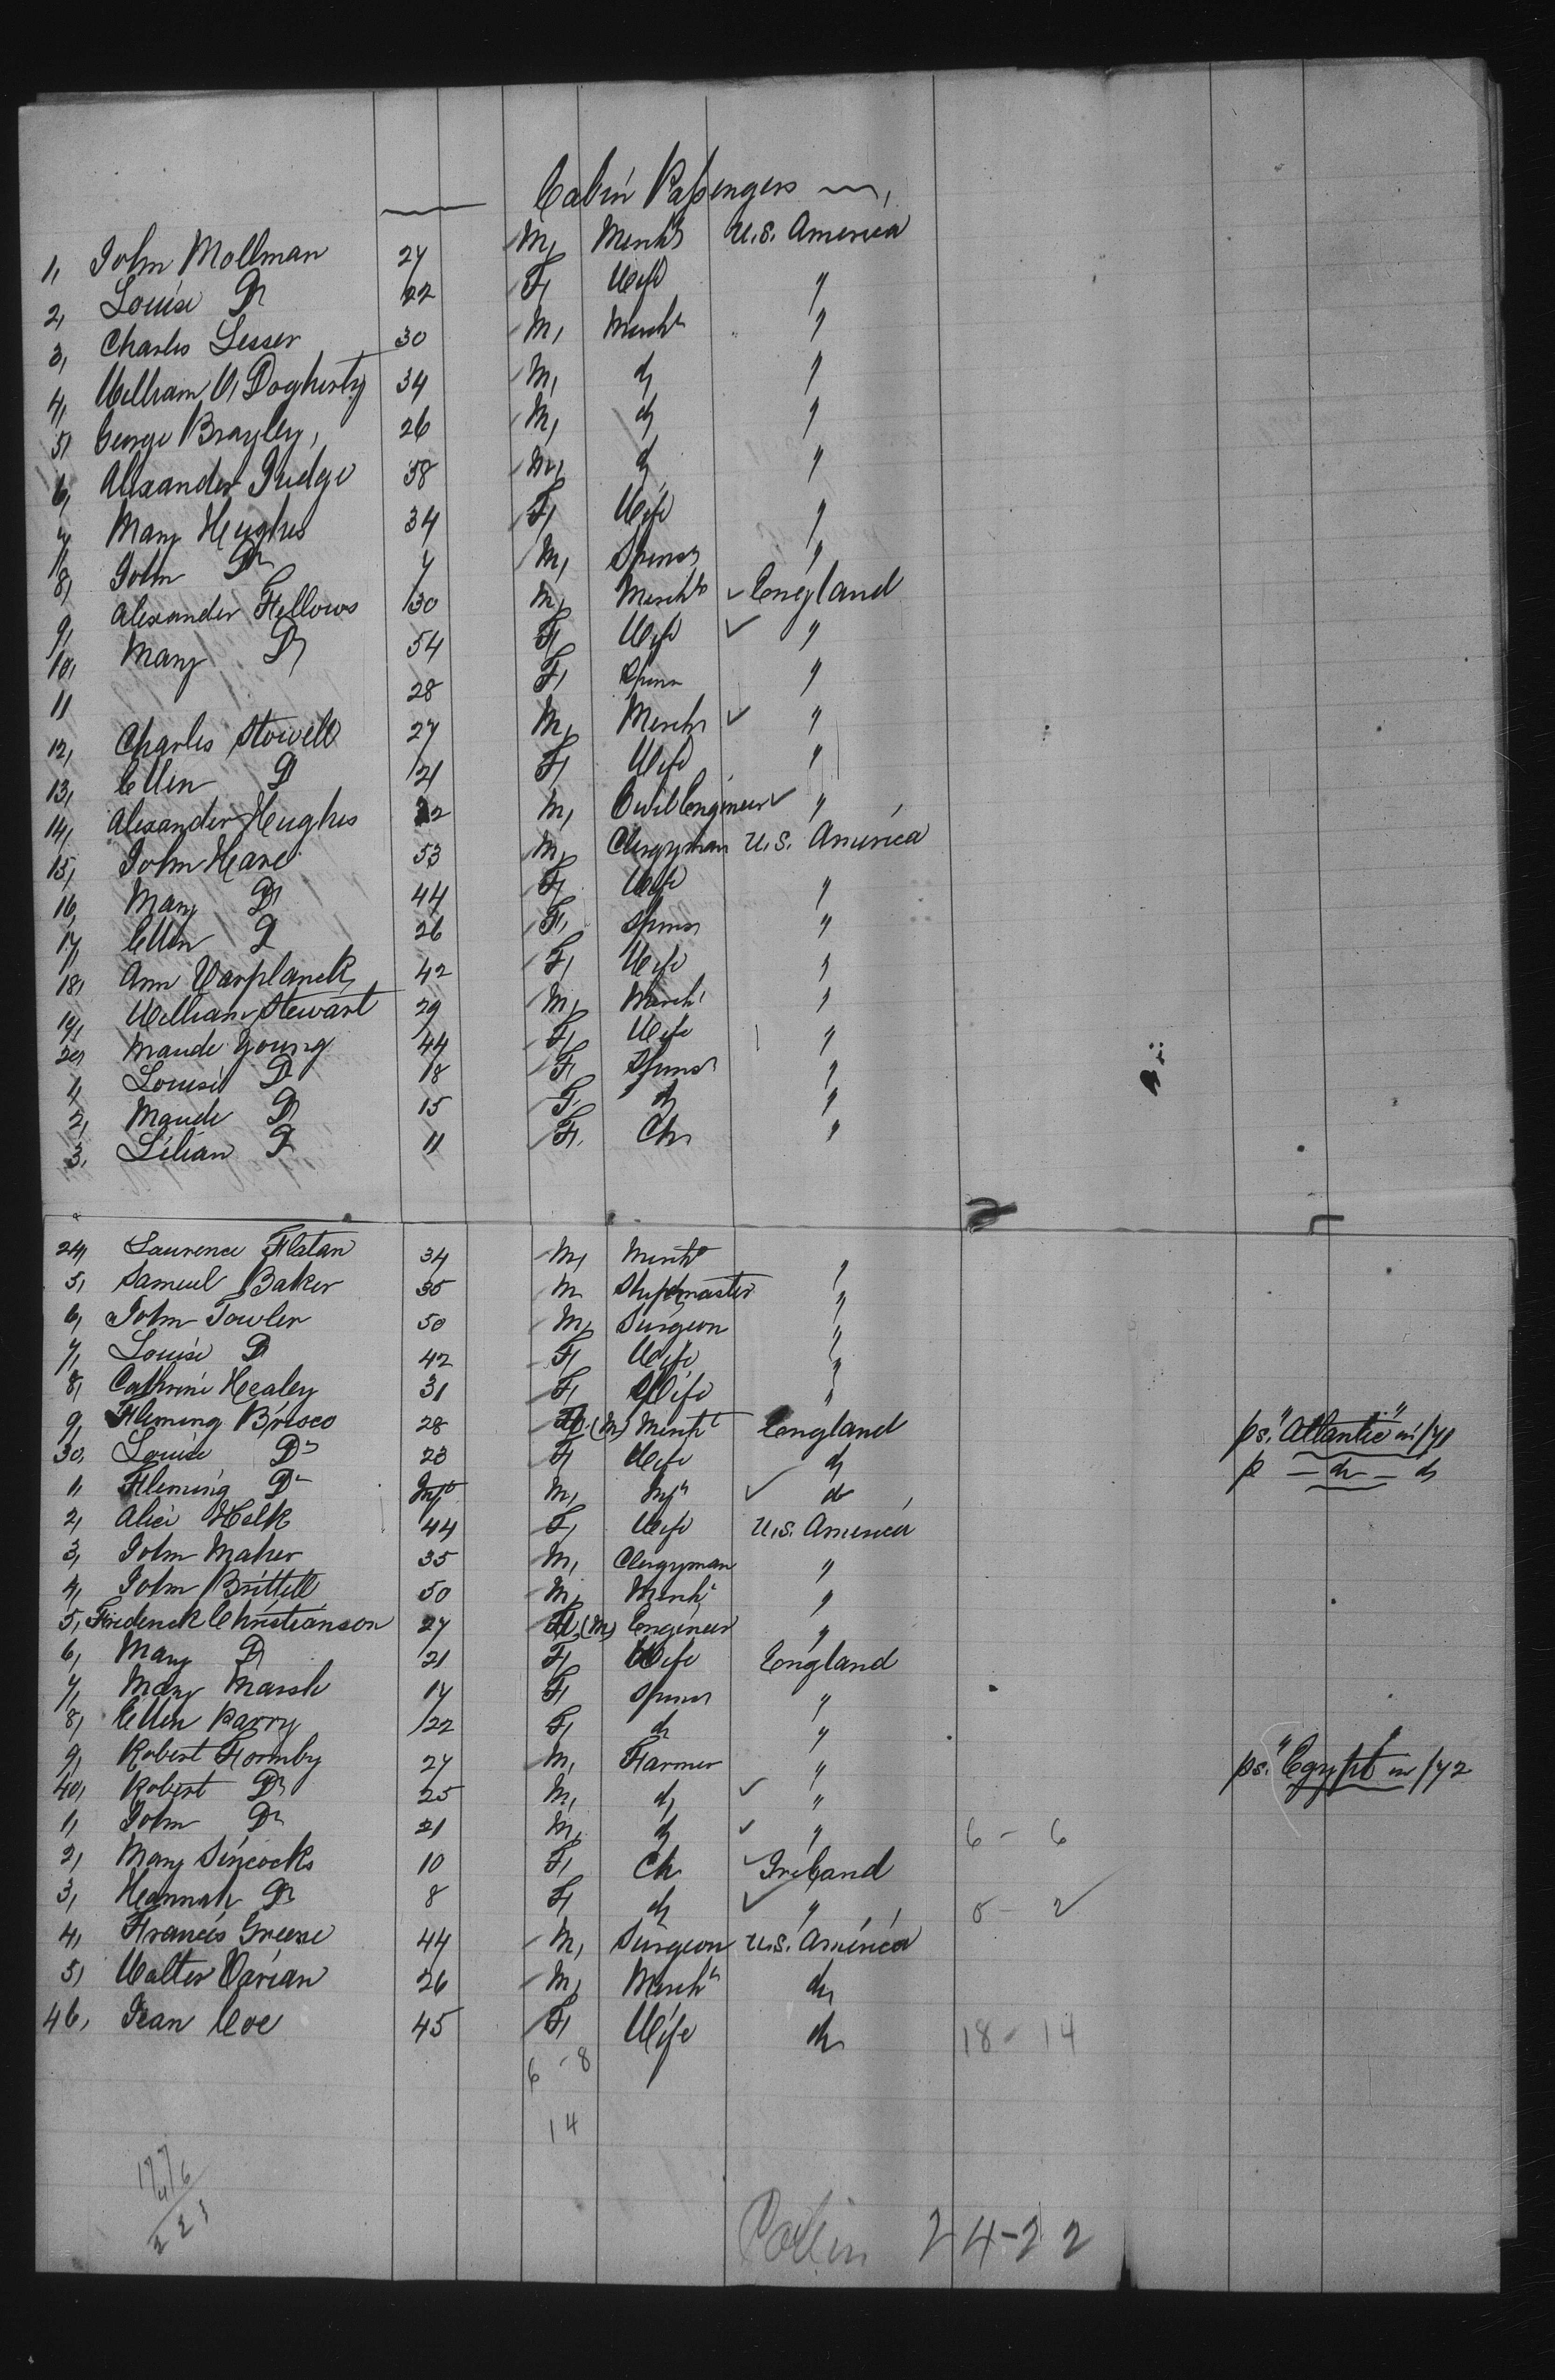 Cabin Passengers
1, John Mollman 27 M, Mercht U.S. America
2, Louise Do 22 F, Wife "
3, Charles Lesser 30 M, Mercht "
4, William O'Dogherty 34 M, do "
5, George Brayley, 26 M, do "
6, Alexander Judge 38 M, do "
7, Mary Hughes 34 F, Wife "
8, John Do 7 M, Spinsr "
9, Alexander Fellows 30 M, Mercht England
10, Mary Do 54 F, Wife "
11 28 F, Spinr "
12, Charles Stowell 27 M, Mercht "
13, Ellen D 21 F, Wife "
14, Alexander Hughes 22 M, Civil Engineer "
15, John Hare 53 M, Clergyman U.S. America
16, Mary Do 44 F, Wife "
17, Ellen D 26 F, Spinsr "
18, Ann Varplanck 42 F, Wife "
19, William Stewart 29 M, Mercht "
20, Maude Young 44 F, Wife "
1, Louise Do 18 F, Spinsr "
2, Maude Do 15 F, do "
3, Lilian D 11 F, Ch "
24, Laurence Flatan 34 M, Mercht "
5, Sameul Baker 35 M Shipmaster "
6, John Towler 50 M, Surgeon "
7, Louise D 42 F, Wife "
8, Cathrine Healey 31 F, Wife "
9, Fleming Brisco 28 (M) Mercht England ps. "Atlantic" in /71
30, Louise Do 23 F Wife do p - do - do
1, Fleming Do Inft M, Inft do
2, Alice Holk 44 F, Wife U.S. America
3, John Maher 35 M, Clergyman "
4, John Brittell 50 M, Mercht "
5, Frederick Christianson 27 (M) Engineer "
6, Mary D 21 F, Wife England
7, Mary Marsh 17 F, Spinsr "
8, Ellen Parry 22 F, do "
9, Robert Formby 27 M, Farmer " ps. "Egypt" in /72
40, Robert Do 25 M, do "
1, John Do 21 M, do " 6 - 6
2, Mary Sincocks 10 F, Ch Ireland
3, Hannah Do 8 F, do " 8 - 2
4, Francis Greene 44 M, Surgeon U.S. America
5, Walter Varian 26 M, Mercht do
46, Jean Coe 45 F, Wife do 18 - 14
6 - 8
14
24-22